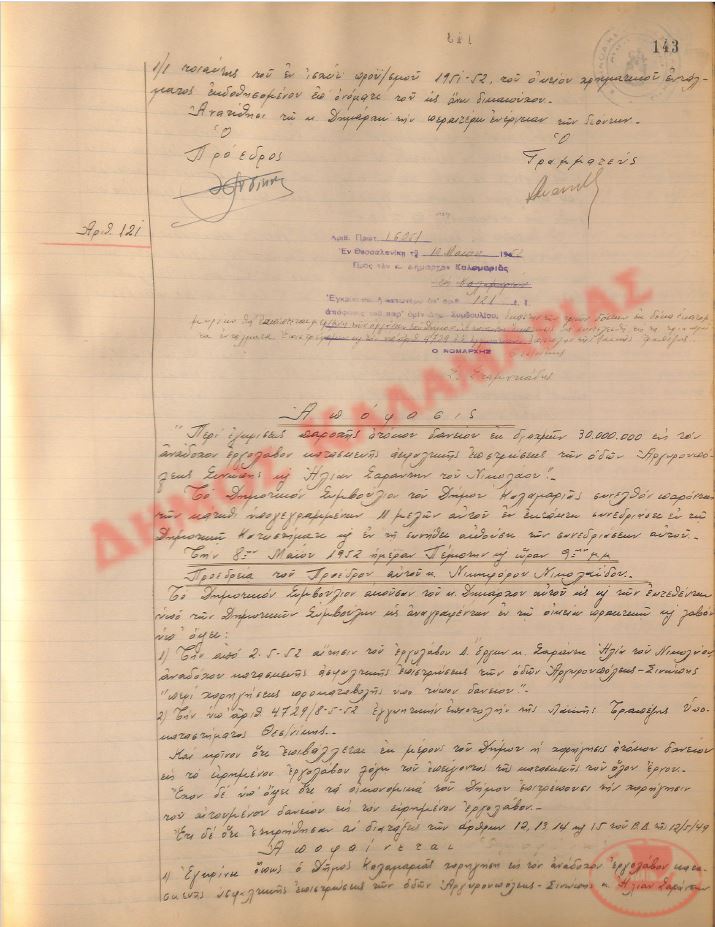 143
1/1 τοιαύτης τοῦ ἐν ἰσχύϊ προϋ/σμοῦ 1951-52, τοῦ οἰκείου χρηματικοῦ ἐντάλ-
ματος ἐκδοθησομένου ἐπ' ὀνόματι τοῦ ὡς ἄνω δικαιούχου.
Ἀνατίθησι τῷ κ. Δημάρχῳ τὴν περαιτέρω ἐνέργειαν τῶν δεόντων.
Ὁ Ὁ
Πρόεδρος Γραμματεύς
Ἀριθ. 121
Ἀριθ. Πρωτ. 16251
Ἐν Θεσσαλονίκῃ τῇ 10 Μαΐου 1952
Πρὸς τὸν κ. Δήμαρχον Καλαμαριᾶς
Ἐγκρίνεται ἡ κατωτέρω ὑπ' ἀριθ. 121 ἐ. ἔ.
ἀπόφασις τοῦ παρ' ὑμῖν Δημ. Συμβουλίου,
Ο ΝΟΜΑΡΧΗΣ
ΔΗΜΟΣ ΚΑΛΑΜΑΡΙΑΣ
Ἀπόφασις
"Περὶ ἐγκρίσεως παροχῆς ἀτόκου δανείου ἐκ δραχμῶν 30.000.000 εἰς τὸν
ἀνάδοχον ἐργολάβον κατασκευῆς ἀσφαλτικῆς ἐπιστρώσεως τῶν ὁδῶν Ἀργυρουπό-
λεως Σινώπης κ Ἠλίαν Σαράντην τοῦ Νικολάου".-
Τὸ Δημοτικὸν Συμβούλιον τοῦ Δήμου Καλαμαριᾶς συνελθὸν παρόντων
τῶν κάτωθι ὑπογεγραμμένων 11 μελῶν αὐτοῦ ἐν ἐκτάκτῳ συνεδριάσει ἐν τῷ
Δημοτικῷ Καταστήματι κ ἐν τῇ συνήθει αἰθούσῃ τῶν συνεδριάσεων αὐτοῦ.
Τὴν 8ην Μαΐου 1952 ἡμέραν Πέμπτην κ ὥραν 9ην μ.μ
Προεδρίᾳ τοῦ Προέδρου αὐτοῦ κ. Νικηφόρου Νικολαΐδου.-
Τὸ Δημοτικὸν Συμβούλιον ἀκοῦσαν τοῦ κ. Δημάρχου αὐτοῦ ὡς κ τῶν ἐκτεθέντων
ὑπὸ τῶν Δημοτικῶν Συμβούλων ὡς ἀναγράφονται ἐν τῷ οἰκείῳ πρακτικῷ κ λαβὸν
ὑπ' ὄψει:
1) Τὴν ἀπὸ 2-5-52 αἴτησιν τοῦ ἐργολάβου Δ. Ἔργων κ. Σαράντη Ἠλία τοῦ Νικολάου,
ἀναδόχου κατασκευῆς ἀσφαλτικῆς ἐπιστρώσεως τῶν ὁδῶν Ἀργυρουπόλεως-Σινώπης
"περὶ χορηγήσεως προκαταβολῆς ὑπὸ τύπον δανείου".
2) Τὴν ὑπ' ἀριθ. 4729/8-5-52 ἐγγυητικὴν ἐπιστολὴν τῆς Λαϊκῆς Τραπέζης Ὑπο-
καταστήματος Θεσ/νίκης.-
Καὶ κρῖνον ὅτι ἐπιβάλλεται ἐκ μέρους τοῦ Δήμου ἡ χορήγησις ἀτόκου δανείου
εἰς τὸ εἰρημένον ἐργολάβον λόγῳ τοῦ ἐπείγοντος τῆς κατασκευῆς τοῦ ὅλου ἔργου.-
Ἔχον δὲ ὑπ' ὄψει ὅτι τὰ οἰκονομικὰ τοῦ Δήμου ἐπιτρέπουσι τὴν χορήγησιν
τοῦ αἰτουμένου δανείου εἰς τὸν εἰρημένον ἐργολάβον.-
Ἔτι δὲ ὅτι ἐτηρήθησαν αἱ διατάξεις τῶν ἄρθρων 12, 13, 14 κ 15 τοῦ Β.Δ τῆς 12/5/49
Ἀποφαίνεται
1) Ἐγκρίνει ὅπως ὁ Δῆμος Καλαμαριᾶς χορηγήσῃ εἰς τὸν ἀνάδοχον ἐργολάβον κατα-
σκευῆς ἀσφαλτικῆς ἐπιστρώσεως τῶν ὁδῶν Ἀργυρουπόλεως-Σινώπης κ. Ἠλίαν Σαράντην